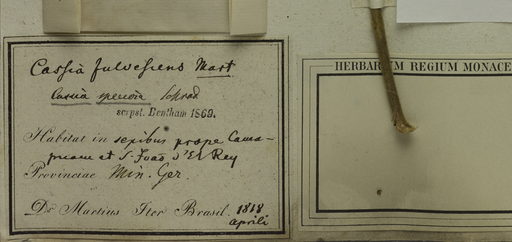 Cassia fulvescens Mart
Cassia speciosa Schrad
scrpst. Bentham 1869.
Habitat in sepibus prope Cama-
pucam et S. Joao d'El Rey
Provinciae Min. Ger.
Dr Martius Iter Brasil. 1818
Aprili
HERBARIUM REGIUM MONACE